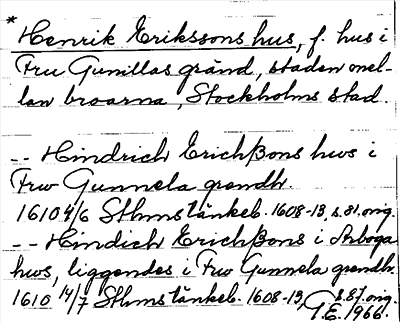 * Henrik Erikssons hus, f. hus i
Fru Gunillas gränd, staden mel-
lan broarna, Stockholms stad.
-- Hindrich Erichßons hws i
Frw Gunnela grendh.
1610 4/6 Sthms tänkeb. 1608-13, s. 81. orig.
-- Hindich Erichßons i Arboga
hws, liggendes i Frw Gunnela grendh.
1610 14/7 Sthms tänkeb. 1608-13, s. 87. orig.
G.E. 1966.